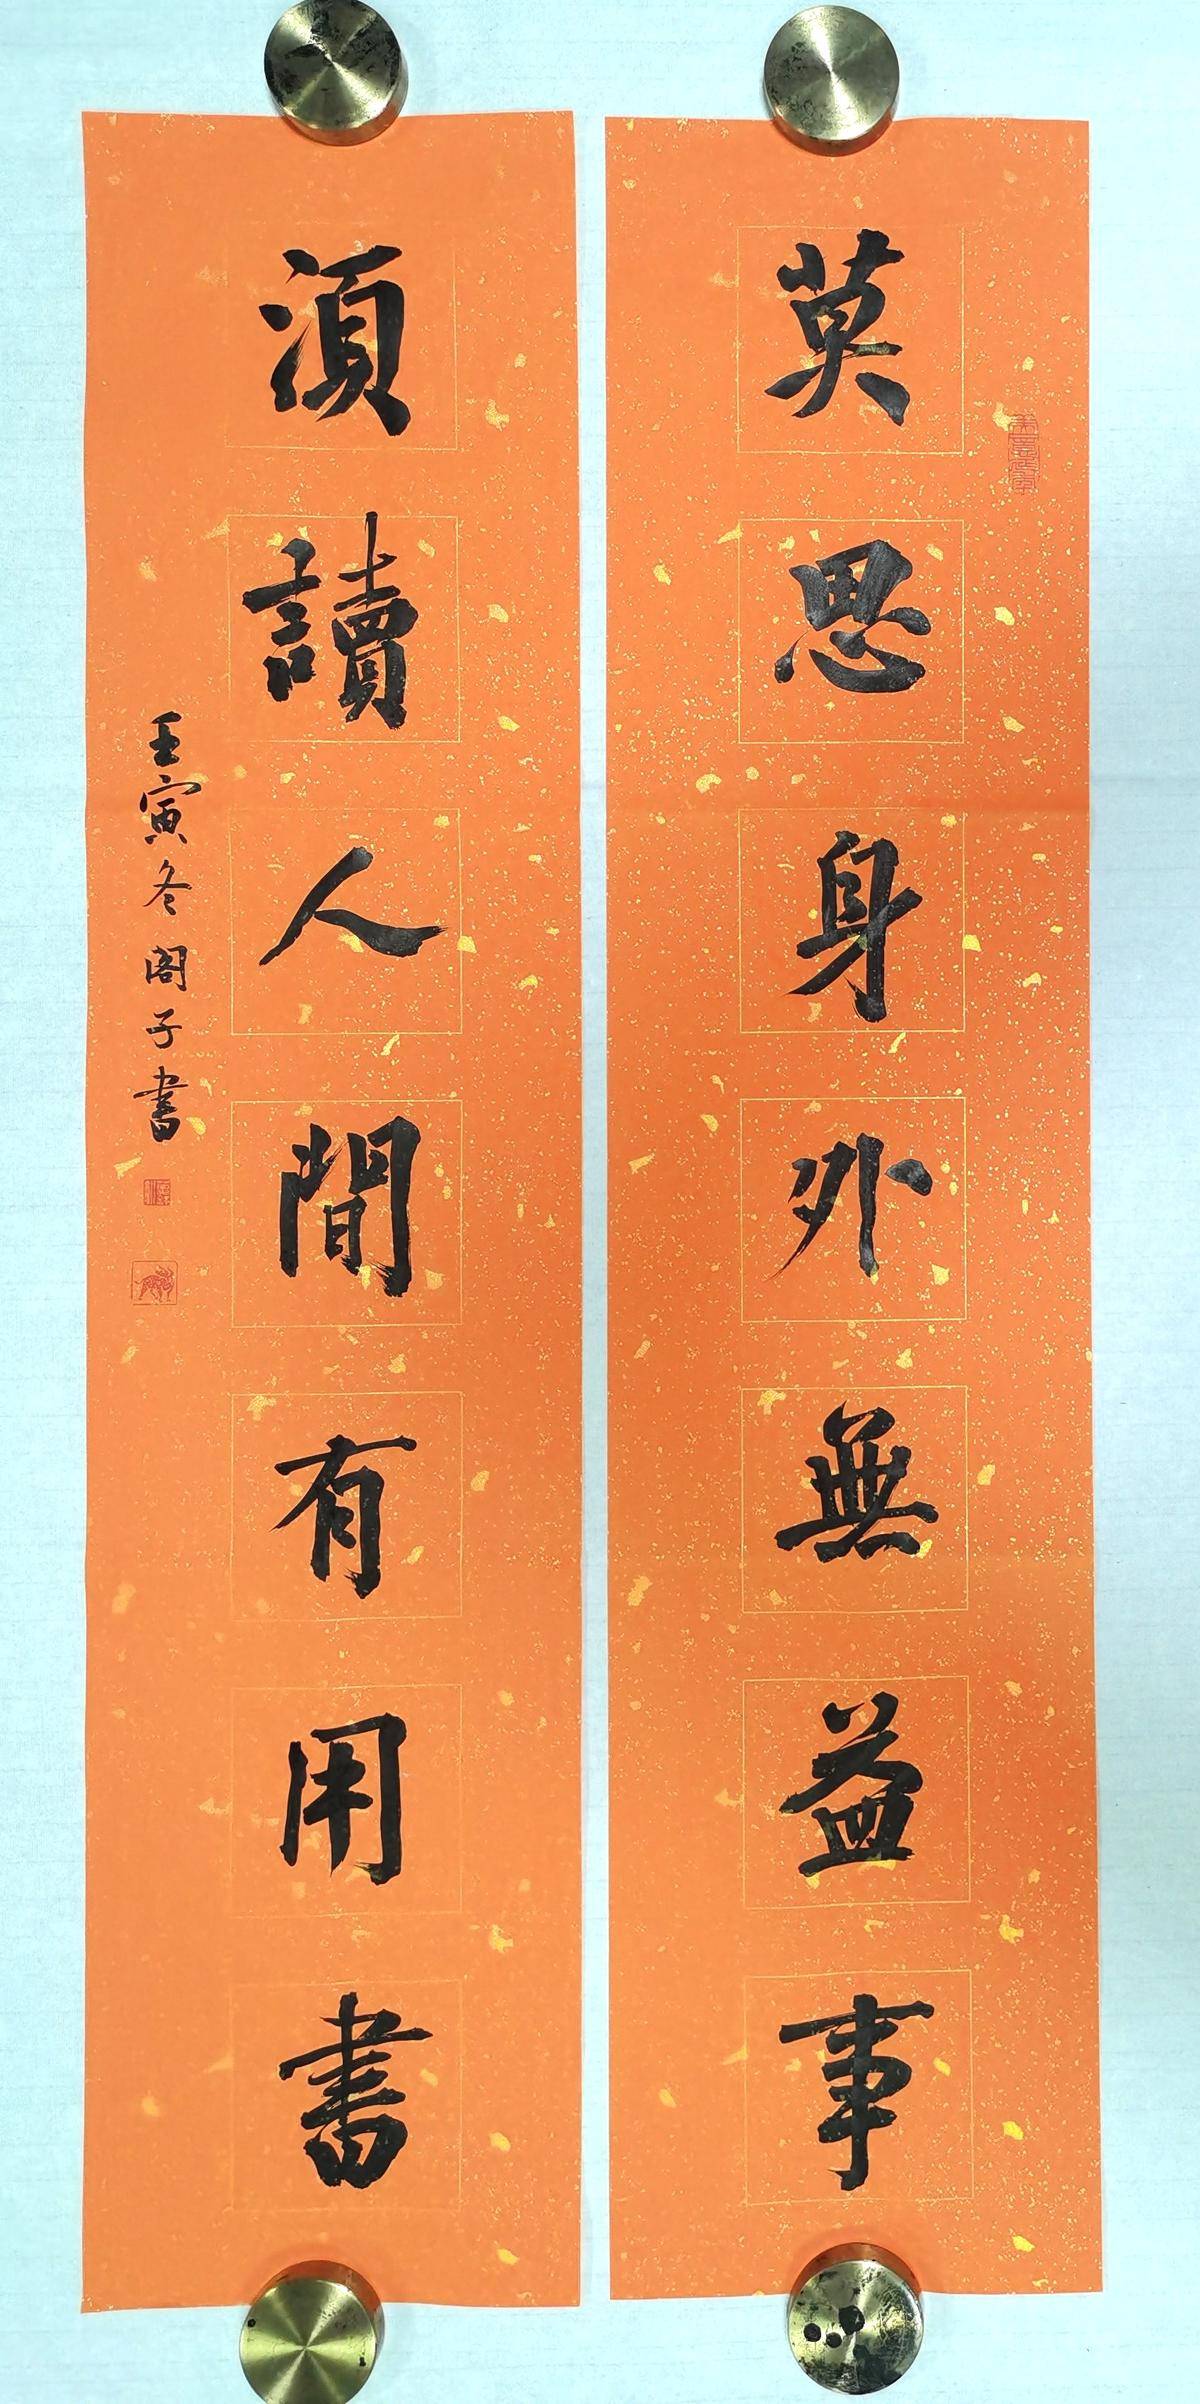 莫思身外無益事
須讀人間有用書
壬寅冬閣子書